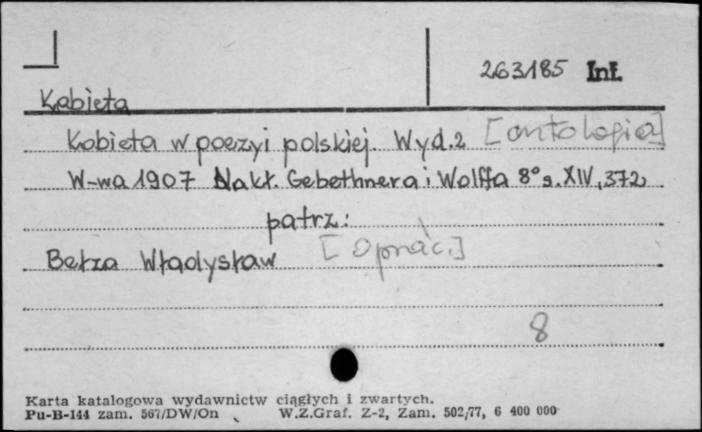 263185 Int.
Kobieta
Kobieta w poezyi polskiej. Wyd. 2 [antologia]
W-wa 1907 Nakł. Gebethnera i Wolffa 8° s. XIV, 372
patrz:
Bełza Władysław [oprac.]
8
Karta katalogowa wydawnictw ciągłych i zwartych.
Pu-B-144 zam. 567/DW/On W.Z.Graf. Z-2, Zam. 502/77, 6 400 000